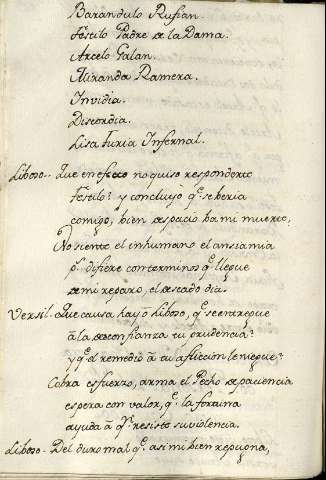 Barandulo Rufian.
Festilo Padre de la Dama.
Arcelo Galan.
Miranda Ramera.
Invidia.
Discordia.
Lisa furia Infernal.
Liboso.. Que en efecto no quiso responderte
Festilo? y concluyó q.e se beria
comigo; bien despacio ba mi muerte,
No siente el inhumano el ansia mia
p.s difiere con terminos q.e llegue
de mi reparo, el deseado dia.
Versil. Que causa hay ô Liboso, q.e se entregue
à la desconfianza tu prudencia?
y q.e el remedio à tu afliccion le niegue?
Cobra esfuerzo, arma el Pecho de paciencia
espera con valor, q.e la fortuna
ayuda à q.n resiste su violencia.
Liboso. Del duro mal q.e asi mi bien repugna,